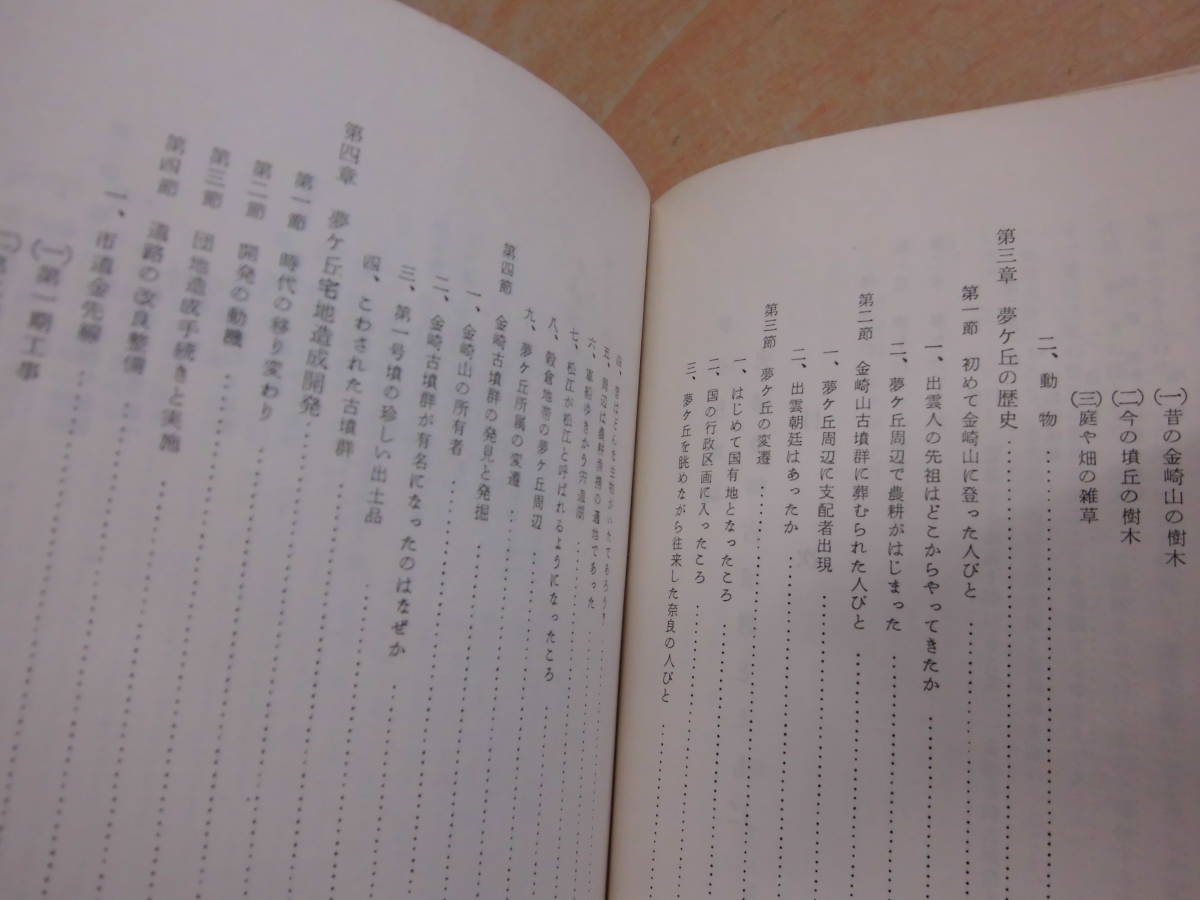 (一)昔の金崎山の樹木
(二)今の墳丘の樹木
(三)庭や畑の雑草
二、動物
第三章 夢ケ丘の歴史
第一節 初めて金崎山に登った人びと
一、出雲人の先祖はどこからやってきたか
二、夢ケ丘周辺で農耕がはじまった
第二節 金崎山古墳群に葬むられた人びと
一、夢ケ丘周辺に支配者出現
二、出雲朝廷はあったか
第三節 夢ケ丘の変遷
一、はじめて国有地となったころ
二、国の行政区画に入ったころ
三、夢ケ丘を眺めながら往来した奈良の人びと
五、周辺は農耕
の適地であった
六、軍船ゆきかう宍道湖
七、松江が松江と呼ばれるようになったころ
八、穀倉地帯の夢ケ丘周辺
九、夢ケ丘所属の変遷
第四節 金崎古墳群の発見と発掘
一、金崎山の所有者
二、金崎古墳群が有名になったのはなぜか
三、第一号墳の珍しい出土品
四、こわされた古墳群
第四章 夢ケ丘宅地造成開発
第一節 時代の移り変わり
第二節 開発の動機
第三節 団地造成手続きと実施
第四節 道路の改良整備
一、市道金先線
(一)第一期工事
(二)第